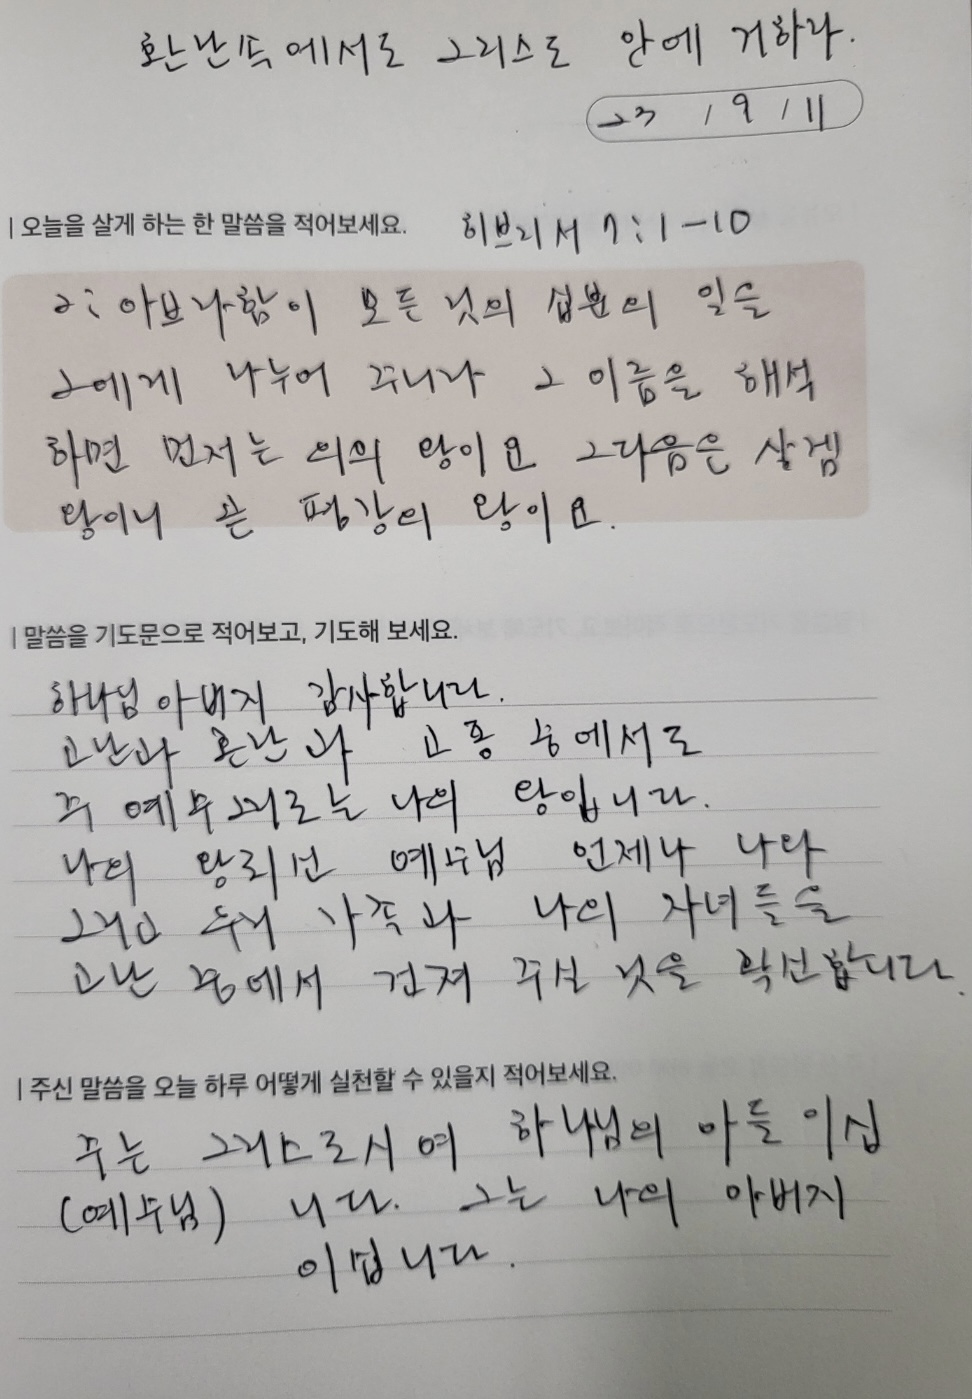 환난 속에서도 그리스도 안에 거하라.
23 / 9 / 11
| 오늘을 살게 하는 한 말씀을 적어보세요. 히브리서 7:1-10
2: 아브라함이 모든 것의 십분의 일을
그에게 나누어 주니라 그 이름을 해석
하면 먼저는 의의 왕이요 그다음은 살렘
왕이니 곧 평강의 왕이요.
| 말씀을 기도문으로 적어보고, 기도해 보세요.
하나님 아버지 감사합니다.
고난과 환난과 고통 중에서도
주 예수 그리스도는 나의 왕입니다.
나의 왕되신 예수님 언제나 나와
그리고 우리 가족과 나의 자녀들을
고난 중에서 건져 주실 것을 확신합니다.
| 주신 말씀을 오늘 하루 어떻게 실천할 수 있을지 적어보세요.
주는 그리스도시여 하나님의 아들이십
(예수님) 니다. 그는 나의 아버지
이십니다.